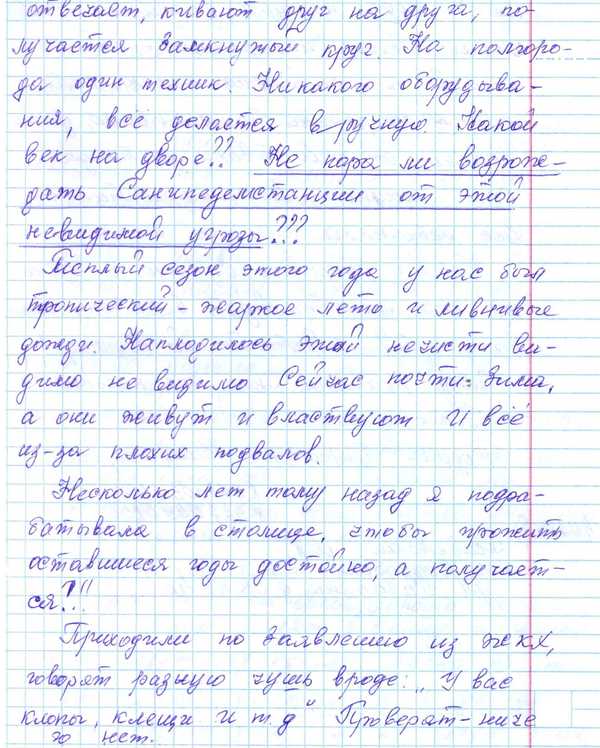 отвечает, кивают друг на друга, по-
лучается замкнутый круг. На полгоро-
да один техник. Никакого оборудыва-
ния, всё делается в ручную. Какой
век на дворе?? Не пора ли возрож-
дать Санэпедемстанции от этой
невидимой угрозы???
Тёплый сезон этого года у нас был
тропический - жаркое лето и ливнивые
дожди. Наплодилось этой нечисти ви-
димо не видимо Сейчас почти зима,
а они живут и властвуют И всё
из-за плохих подвалов.
Несколько лет тому назад я подра-
батывала в столице, чтобы прожить
оставшиеся годы достойно, а получает-
ся?!!
Приходили по заявлению из ЖКХ,
говорят разную чушь вроде: „У вас
клопы, клещи и т.д" Проверят - ниче
го нет.